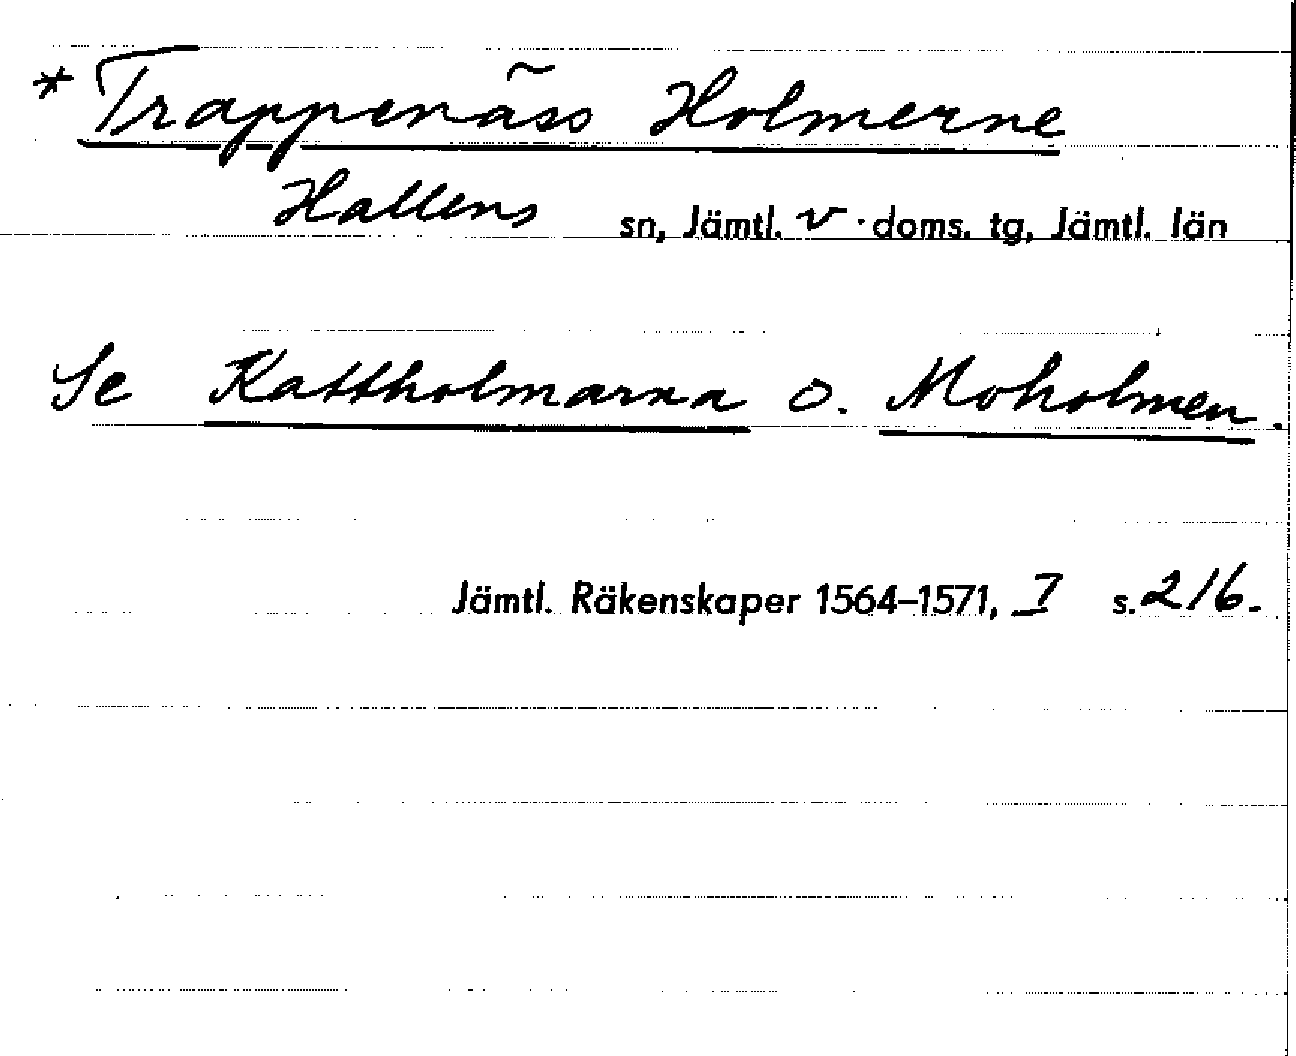 * Trappenãss Holmerne
Hallens sn, Jämtl. v. doms. tg, Jämtl. län
Se Kattholmarna o. Moholmen.
Jämtl. Räkenskaper 1564–1571, I s. 216.